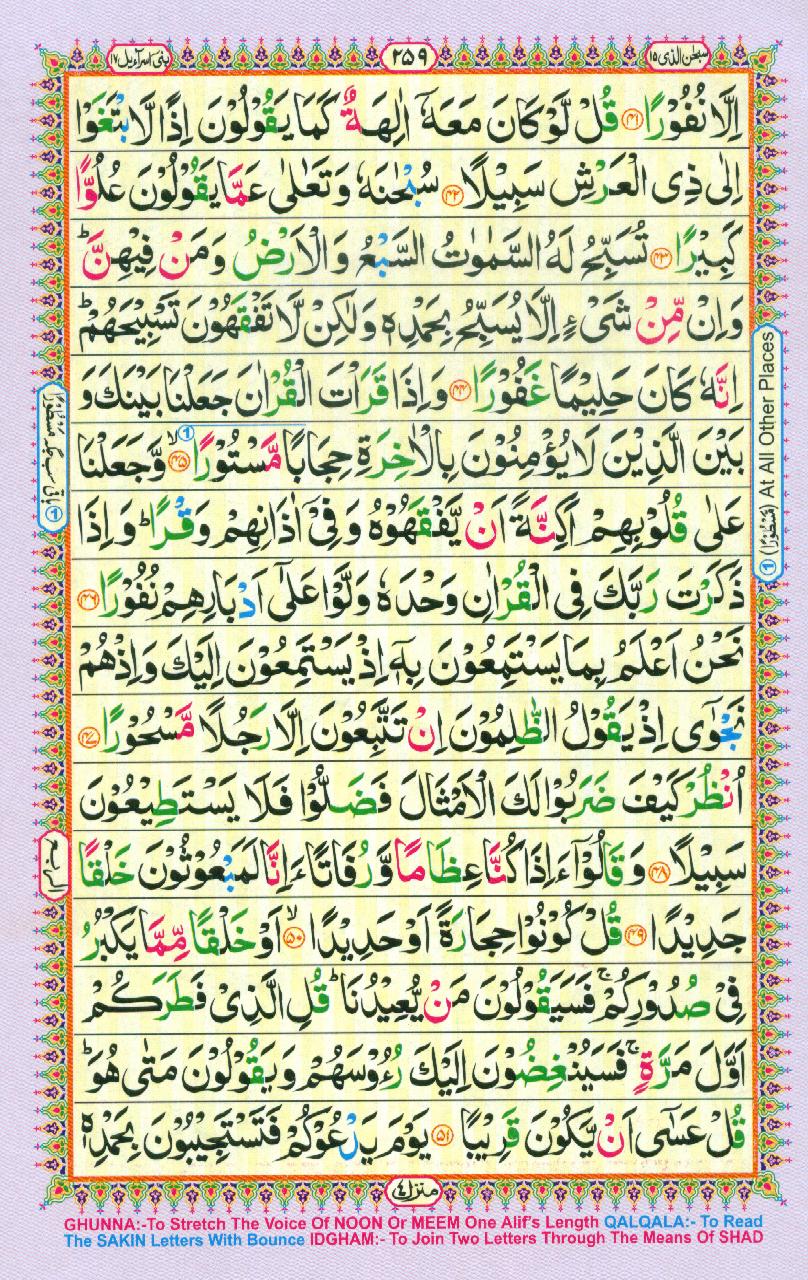 سبحٰن الذی ۱۵
۲۵۹
بنی اسرآءیل ۱۷
اِلَّا نُفُوۡرًا ﴿۴۱﴾ قُلۡ لَّوۡ كَانَ مَعَهٗۤ اٰلِهَةٌ كَمَا يَقُوۡلُوۡنَ اِذًا لَّابۡتَغَوۡا
اِلٰى ذِى الۡعَرۡشِ سَبِيۡلًا ﴿۴۲﴾ سُبۡحٰنَهٗ وَتَعٰلٰى عَمَّا يَقُوۡلُوۡنَ عُلُوًّا
كَبِيۡرًا ﴿۴۳﴾ تُسَبِّحُ لَهُ السَّمٰوٰتُ السَّبۡعُ وَالۡاَرۡضُ وَمَنۡ فِيۡهِنَّ ؕ
وَاِنۡ مِّنۡ شَىۡءٍ اِلَّا يُسَبِّحُ بِحَمۡدِهٖ وَلٰـكِنۡ لَّا تَفۡقَهُوۡنَ تَسۡبِيۡحَهُمۡ ؕ
اِنَّهٗ كَانَ حَلِيۡمًا غَفُوۡرًا ﴿۴۴﴾ وَاِذَا قَرَاۡتَ الۡقُرۡاٰنَ جَعَلۡنَا بَيۡنَكَ وَ
بَيۡنَ الَّذِيۡنَ لَا يُؤۡمِنُوۡنَ بِالۡاٰخِرَةِ حِجَابًا مَّسۡتُوۡرًا ۙ﴿۴۵﴾ وَّجَعَلۡنَا
عَلٰى قُلُوۡبِهِمۡ اَكِنَّةً اَنۡ يَّفۡقَهُوۡهُ وَفِىۡۤ اٰذَانِهِمۡ وَقۡرًا ؕ وَاِذَا
ذَكَرۡتَ رَبَّكَ فِى الۡقُرۡاٰنِ وَحۡدَهٗ وَلَّوۡا عَلٰٓى اَدۡبَارِهِمۡ نُفُوۡرًا ﴿۴۶﴾
نَحۡنُ اَعۡلَمُ بِمَا يَسۡتَمِعُوۡنَ بِهٖۤ اِذۡ يَسۡتَمِعُوۡنَ اِلَيۡكَ وَاِذۡ هُمۡ
نَجۡوٰٓى اِذۡ يَقُوۡلُ الظّٰلِمُوۡنَ اِنۡ تَتَّبِعُوۡنَ اِلَّا رَجُلًا مَّسۡحُوۡرًا ﴿۴۷﴾
اُنْظُرۡ كَيۡفَ ضَرَبُوۡا لَكَ الۡاَمۡثَالَ فَضَلُّوۡا فَلَا يَسۡتَطِيۡعُوۡنَ
سَبِيۡلًا ﴿۴۸﴾ وَقَالُوۡۤا ءَاِذَا كُنَّا عِظَامًا وَّرُفَاتًا ءَاِنَّا لَمَبۡعُوۡثُوۡنَ خَلۡقًا
جَدِيۡدًا ﴿۴۹﴾ قُلۡ كُوۡنُوۡا حِجَارَةً اَوۡ حَدِيۡدًا ۙ﴿۵۰﴾ اَوۡ خَلۡقًا مِّمَّا يَكۡبُرُ
فِىۡ صُدُوۡرِكُمۡ ۚ فَسَيَقُوۡلُوۡنَ مَنۡ يُّعِيۡدُنَا ؕ قُلِ الَّذِىۡ فَطَرَكُمۡ
اَوَّلَ مَرَّةٍ ۚ فَسَيُنۡغِضُوۡنَ اِلَيۡكَ رُءُوۡسَهُمۡ وَيَقُوۡلُوۡنَ مَتٰى هُوَ ؕ
قُلۡ عَسٰٓى اَنۡ يَّكُوۡنَ قَرِيۡبًا ﴿۵۱﴾ يَوۡمَ يَدۡعُوۡكُمۡ فَتَسۡتَجِيۡبُوۡنَ بِحَمۡدِهٖ
① (مَّسْطُوْرًا) At All Other Places
① باقی سب جگہ مَّسْطُوْرًا
الربع
منزل ۴
GHUNNA:-To Stretch The Voice Of NOON Or MEEM One Alif's Length QALQALA:- To Read
The SAKIN Letters With Bounce IDGHAM:- To Join Two Letters Through The Means Of SHAD